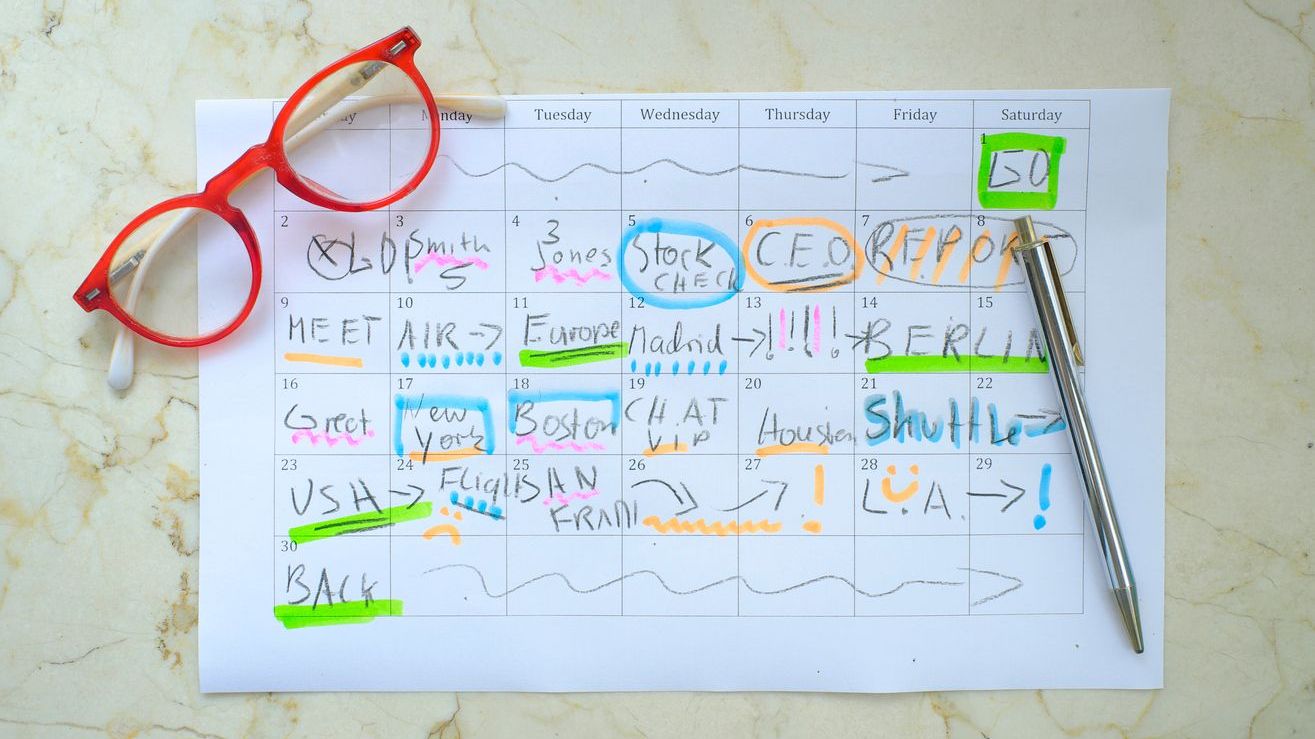 Monday Tuesday Wednesday Thursday Friday Saturday
1
GO
2 3 4 5 6 7 8
Smith 5
3 Jones
Stock CHECK
C.E.O.
REPORT
9 10 11 12 13 14 15
MEET AIR → Europe Madrid → !!!! → BERLIN
16 17 18 19 20 21 22
Greet
New York
Boston
CHAT VIP
Houston
Shuttle →
23 24 25 26 27 28 29
USA →
Flight
SAN FRAN
! L.A. → !
30
BACK